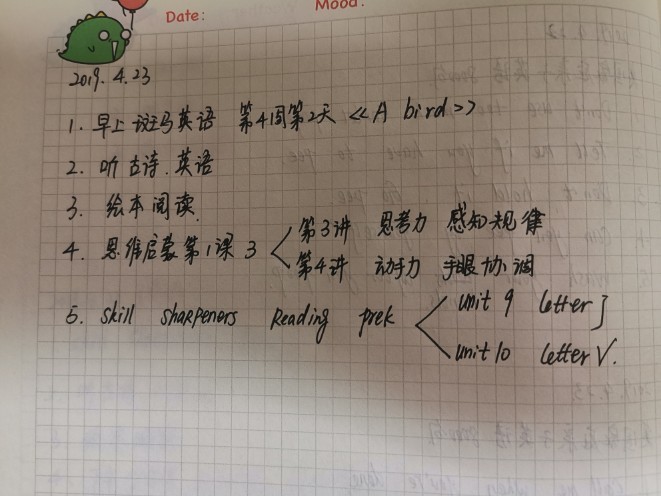 Date:
Mood:
2019.4.23
1. 早上 斑马英语 第4周第2天 <<A bird>>
2. 听古诗.英语
3. 绘本阅读.
4. 思维启蒙第1课 3
第3讲 思考力 感知规律
第4讲 动手力 手眼协调
5. skill sharpeners Reading prek
unit 9 letter J
unit 10 letter V.